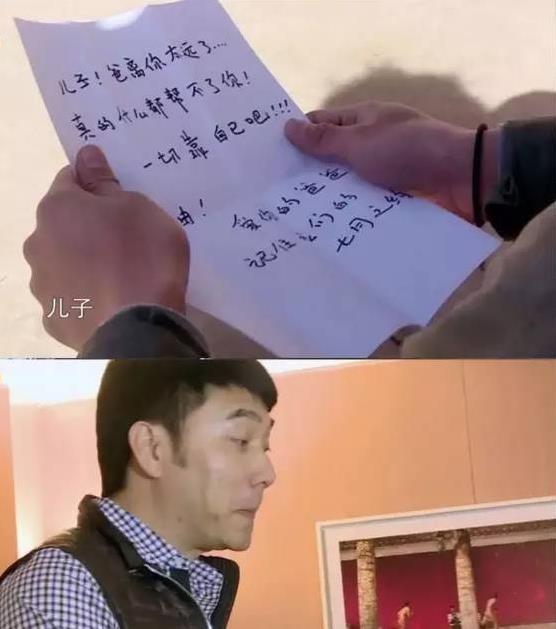 儿子！爸离你太远了....
真的什么都帮不了你！
一切靠自己吧!!!
爱你的爸爸
记住我们的
七同之约
儿子